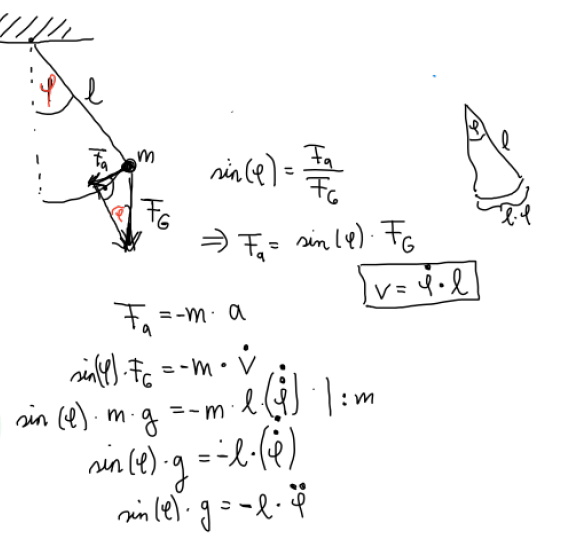 φ
l
m
F_a
φ
F_G
φ
l
l·φ
sin(φ) = F_a / F_G
⇒ F_a = sin(φ) · F_G
v = φ̇ · l
F_a = -m · a
sin(φ) · F_G = -m · v̇
sin (φ) · m · g = -m · l · (φ̇)˙ | : m
sin(φ) · g = -l · (φ̇)˙
sin(φ) · g = -l · φ̈